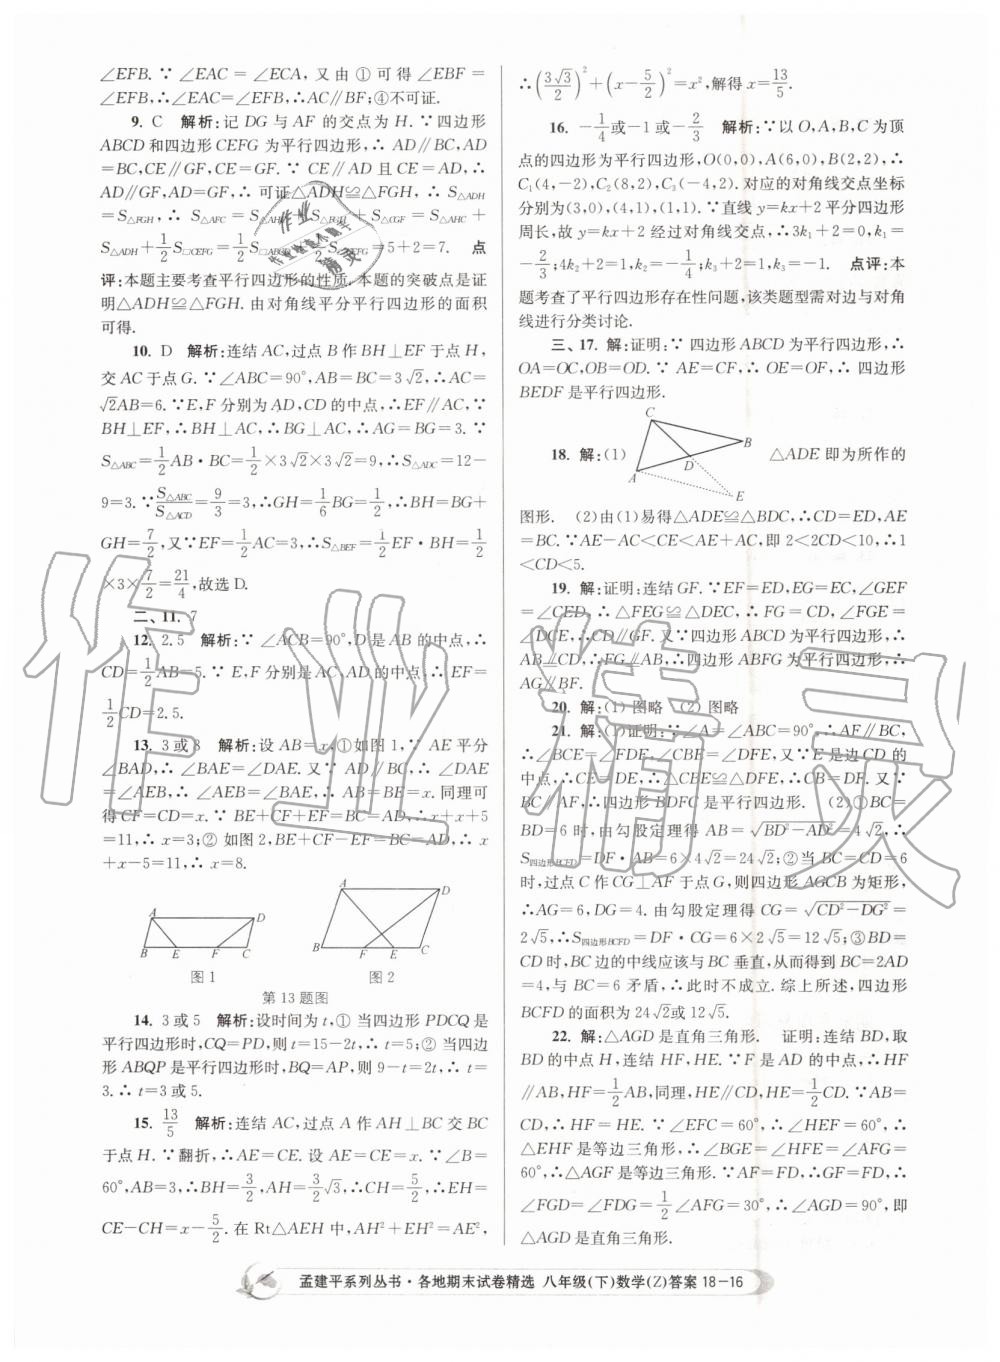 ∠EFB.∵∠EAC=∠ECA,又由①可得∠EBF=
∠EFB,∴∠EAC=∠EFB,∴AC∥BF;④不可证.
9. C 解析:记DG与AF的交点为H.∵四边形
ABCD和四边形CEFG为平行四边形,∴AD∥BC,AD
=BC,CE∥GF,CE=GF.∵CE∥AD且CE=AD,∴
AD∥GF,AD=GF,∴可证△ADH≌△FGH,∴S△ADH
=S△FGH,∴S△AFC=S△AHC+S△FGH+S△CGF=S△AHC+
S△ADH+1/2S▱CEFG=1/2S▱ABCD+1/2S▱CEFG=5+2=7. 点
评:本题主要考查平行四边形的性质.本题的突破点是证
明△ADH≌△FGH.由对角线平分平行四边形的面积
可得.
10. D 解析:连结AC,过点B作BH⊥EF于点H,
交AC于点G.∵∠ABC=90°,AB=BC=3√2,∴AC=
√2AB=6.∵E,F分别为AD,CD的中点,∴EF∥AC,∵
BH⊥EF,∴BH⊥AC,∴BG⊥AC,∴AG=BG=3.∵
S△ABC=1/2AB·BC=1/2×3√2×3√2=9,∴S△ADC=12-
9=3.∵S△ABC/S△ACD=9/3=3,∴GH=1/6BG=1/2,∴BH=BG+
GH=7/2,又∵EF=1/2AC=3,∴S△BEF=1/2EF·BH=1/2
×3×7/2=21/4,故选D.
二、11. 7
12. 2.5 解析:∵∠ACB=90°,D是AB的中点,∴
CD=1/2AB=5.∵E,F分别是AC,AD的中点,∴EF=
1/2CD=2.5.
13. 3或8 解析:设AB=x,①如图1,∵AE平分
∠BAD,∴∠BAE=∠DAE.又∵AD∥BC,∴∠DAE
=∠AEB,∴∠AEB=∠BAE,∴AB=BE=x.同理可
得CF=CD=x.∵BE+CF+EF=BC=AD,∴x+x+5
=11,∴x=3;②如图2,BE+CF-EF=BC=AD,∴x
+x-5=11,∴x=8.
A D B E F C
A D B F E C
图1 图2
第13题图
14. 3或5 解析:设时间为t,①当四边形PDCQ是
平行四边形时,CQ=PD,则t=15-2t,∴t=5;②当四边
形ABQP是平行四边形时,BQ=AP,则9-t=2t,∴t=
3.∴t=3或5.
15. 13/5 解析:连结AC,过点A作AH⊥BC交BC
于点H.∵翻折,∴AE=CE.设AE=CE=x.∵∠B=
60°,AB=3,∴BH=3/2,AH=3/2√3,∴CH=5/2,∴EH=
CE-CH=x-5/2.在Rt△AEH中,AH²+EH²=AE²,
∴(3√3/2)²+(x-5/2)²=x²,解得x=13/5.
16. -1/4或-1或-2/3 解析:∵以O,A,B,C为顶
点的四边形为平行四边形,O(0,0),A(6,0),B(2,2),∴
C₁(4,-2),C₂(8,2),C₃(-4,2).对应的对角线交点坐标
分别为(3,0),(4,1),(1,1).∵直线y=kx+2平分四边形
周长,故一次函数图象经过对角线交点,∴3k₁+2=0,k₁=
-2/3;4k₂+2=1,k₂=-1/4;k₃+2=1,k₃=-1. 点评:本
题考查了平行四边形存在性问题,该类题型需对边与对角
线进行分类讨论.
三、17. 解:证明:∵四边形ABCD为平行四边形,∴
OA=OC,OB=OD.∵AE=CF,∴OE=OF,∴四边形
BEDF是平行四边形.
18. 解:(1) C B D A E △ADE即为所作的
图形. (2)由(1)易得△ADE≌△BDC,∴CD=ED,AE
=BC.∵AE-AC<CE<AE+AC,即2<2CD<10,∴1
<CD<5.
19. 解:证明:连结GF.∵EF=ED,EG=EC,∠GEF
=∠CED,∴△FEG≌△DEC,∴FG=CD,∠FGE=
∠DCE,∴CD∥GF.又∵四边形ABCD为平行四边形,∴
AB⊥CD,∴FG∥AB,∴四边形ABFG为平行四边形,∴
AG∥BF.
20. 解:(1)图略 (2)图略
21. 解:(1)证明:∵∠A=∠ABC=90°,∴AF∥BC,
∴∠BCE=∠FDE,∠CBE=∠DFE,又∵E是边CD的
中点,∴CE=DE,∴△CBE≌△DFE,∴CB=DF.又∵
BC∥AF,∴四边形BDFC是平行四边形. (2)①BC=
BD=6时,由勾股定理得AB=√BD²-AD²=4√2,∴
S四边形BCFD=DF·AB=6×4√2=24√2;②当BC=CD=6
时,过点C作CG⊥AF于点G,则四边形AGCB为矩形,
∴AG=6,DG=4.由勾股定理得CG=√CD²-DG²=
2√5,∴S四边形BCFD=DF·CG=6×2√5=12√5;③BD=
CD时,BC边的中线应该与BC垂直,从而得到BC=2AD
=4,与BC=6矛盾,∴此时不成立.综上所述,四边形
BCFD的面积为24√2或12√5.
22. 解:△AGD是直角三角形. 证明:连结BD,取
BD的中点H,连结HF,HE.∵F是AD的中点,∴HF
∥AB,HF=1/2AB,同理,HE∥CD,HE=1/2CD.∵AB=
CD,∴HF=HE.∵∠EFC=60°,∴∠HEF=60°,∴
△EHF是等边三角形,∴∠BGE=∠HFE=∠AFG=
60°,∴△AGF是等边三角形.∵AF=FD,∴GF=FD,∴
∠FGD=∠FDG=1/2∠AFG=30°,∴∠AGD=90°,即
△AGD是直角三角形.
孟建平系列丛书·各地期末试卷精选 八年级(下)数学(Z)答案18-16
作业精灵